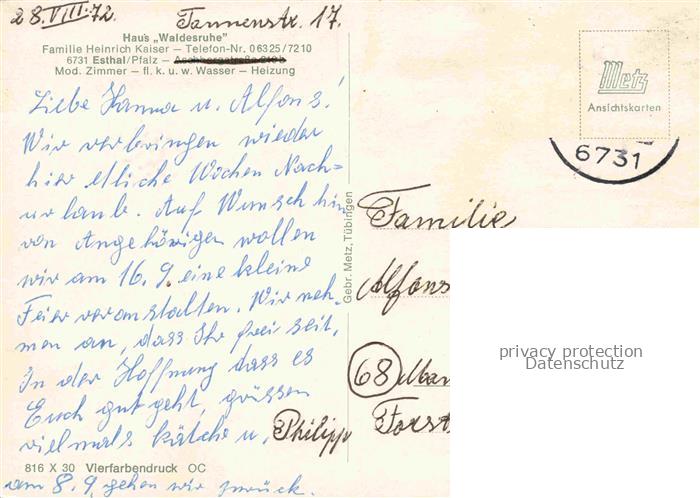 28.VIII.72. Tannenstr. 17.
Haus „Waldesruhe"
Familie Heinrich Kaiser – Telefon-Nr. 06325/7210
6731 Esthal/Pfalz –
Mod. Zimmer – fl. k. u. w. Wasser – Heizung
Liebe Hanna u. Alfons!
Wir verbringen wieder
hier etliche Wochen Nach=
urlaub. Auf Wunsch hin
von Angehörigen wollen
wir am 16.9. eine kleine
Feier veranstalten. Wir neh,
men an, dass Ihr frei seit,
In der Hoffnung dass es
Euch gut geht, grüssen
vielmals Kätche u. Philipp
816 X 30 Vierfarbendruck OC
am 8.9. gehen wir zurück.
Gebr. Metz, Tübingen
Metz
Ansichtskarten
6731
Familie
Alfons
68 Man
Forst
privacy protection
Datenschutz